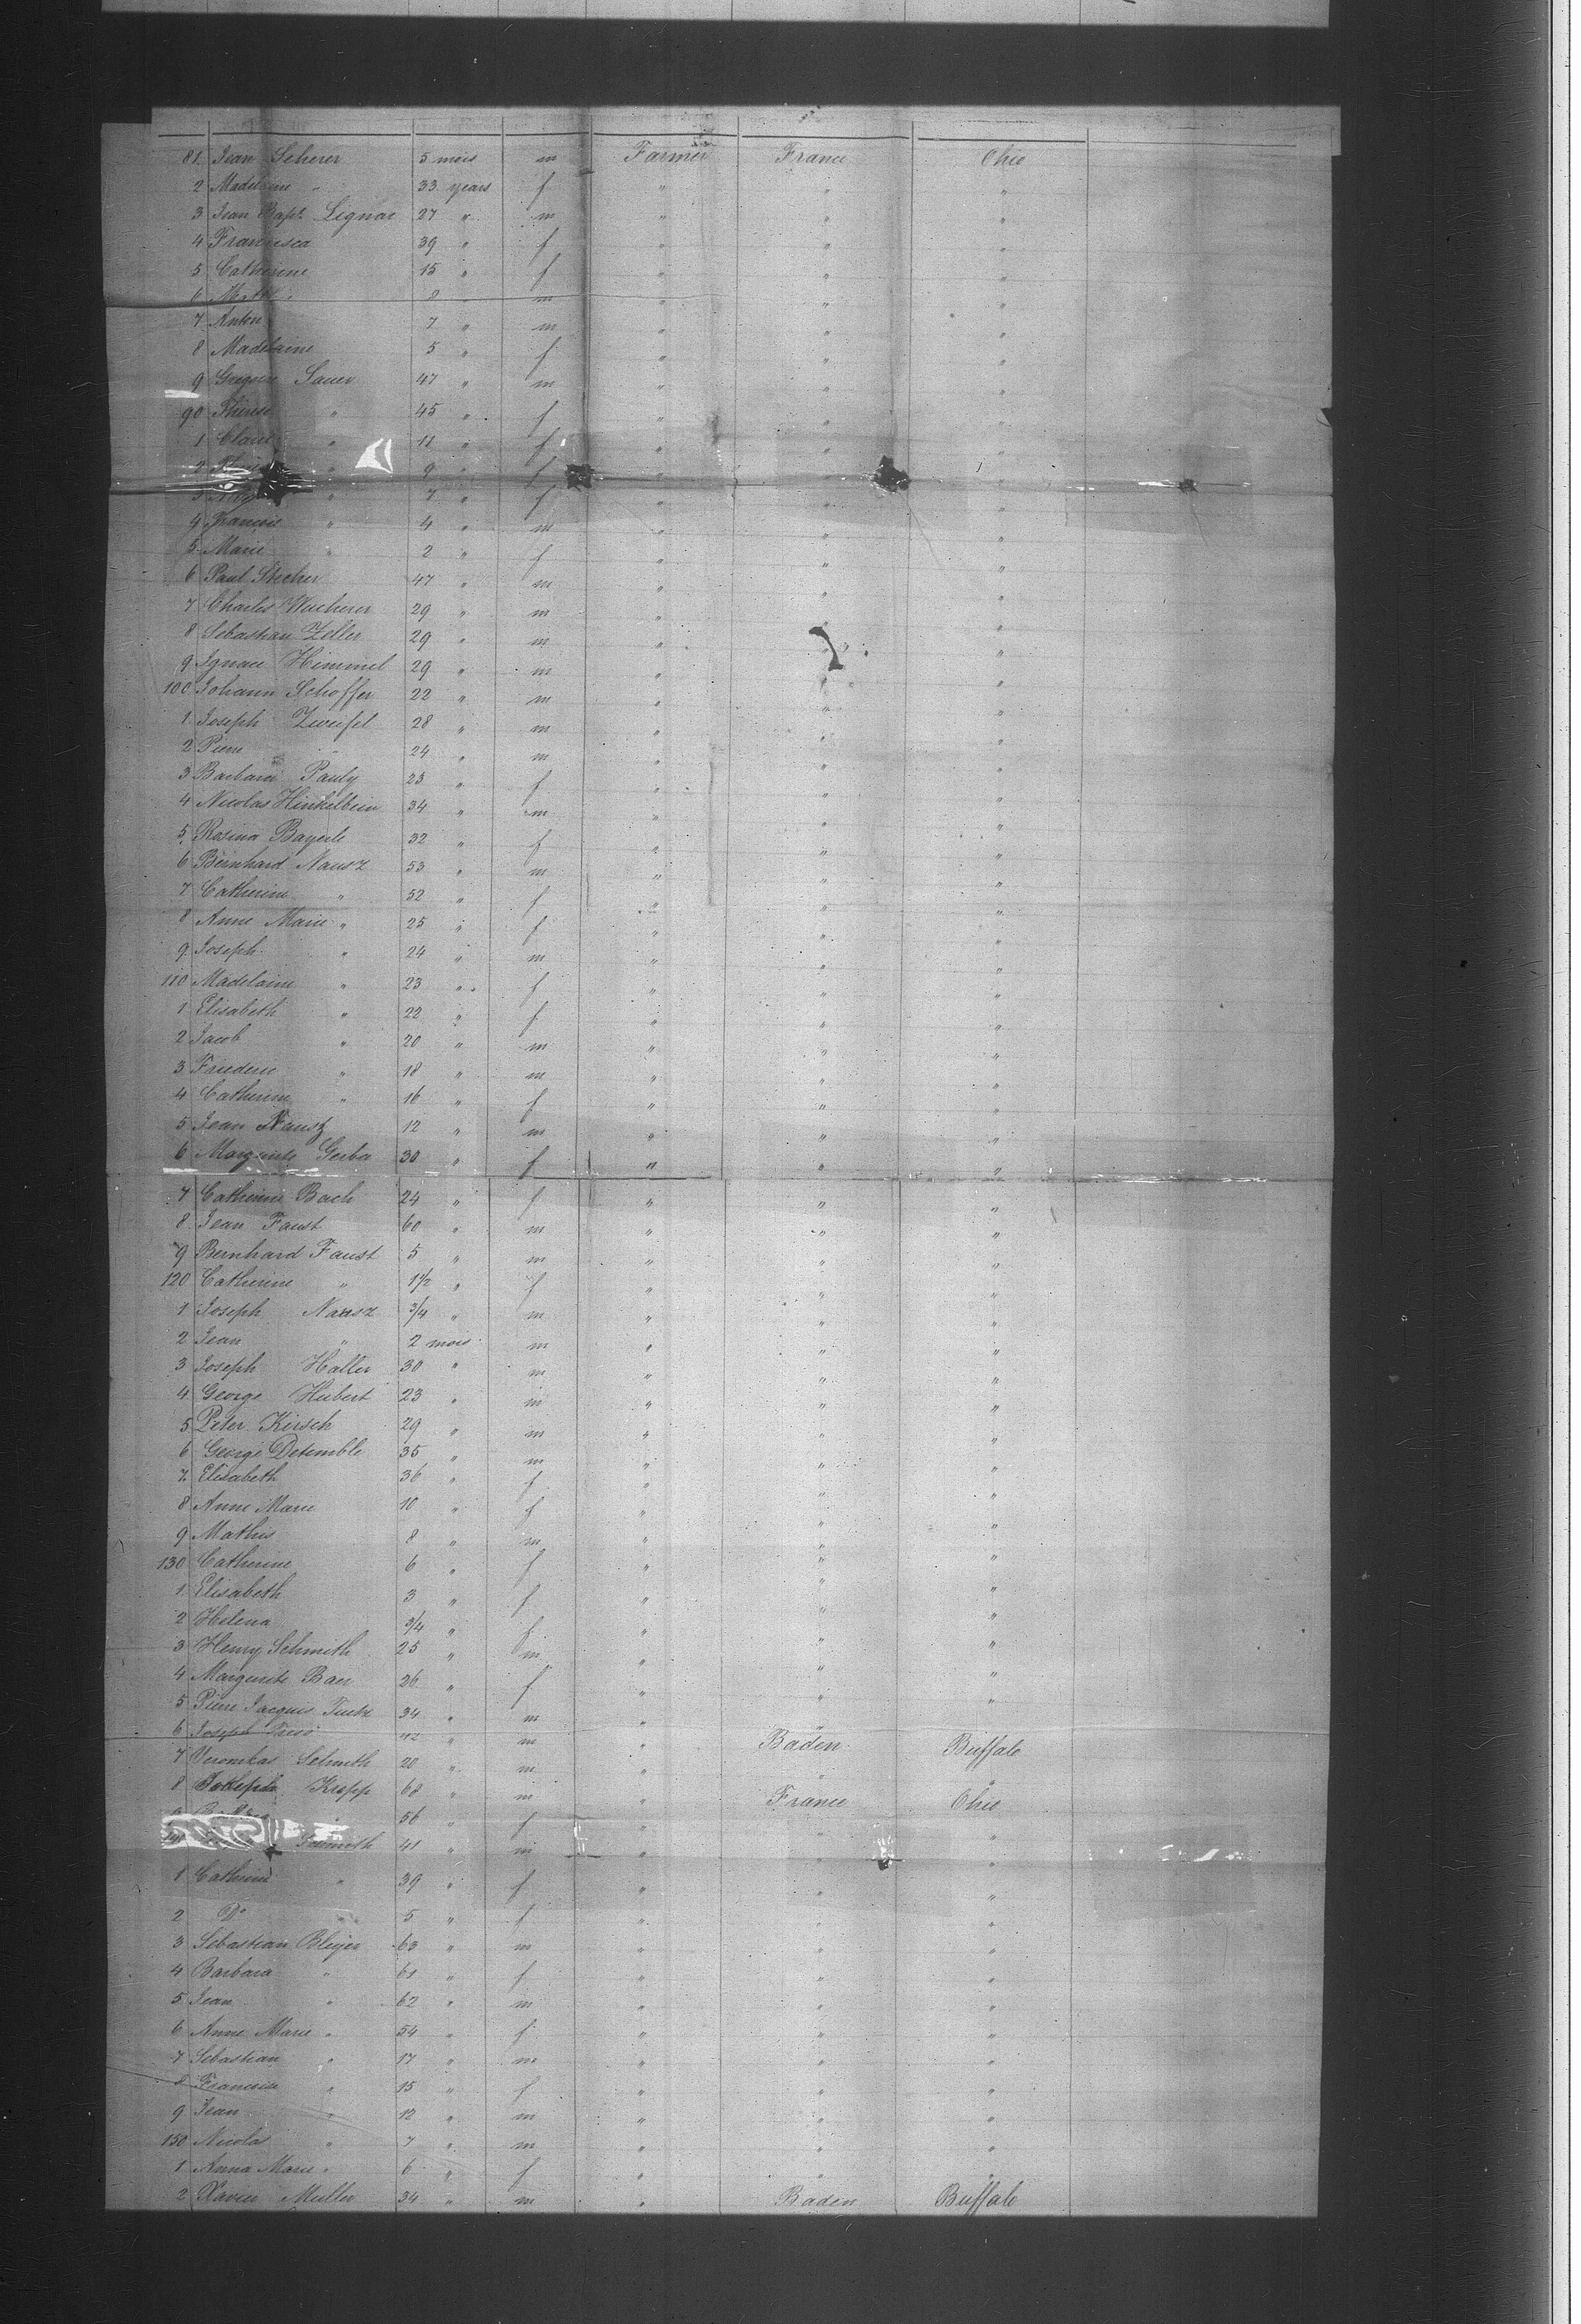 81. Jean Scherer 5 mois m Farmer France Ohio
2 Madelaine " 33 years f " " "
3 Jean Bapt. Lignac 27 " m " " "
4 Francisca 39 " f " " "
5 Catherine 15 " f " " "
6 8 " m " " "
7 Anton 7 " m " " "
8 Madelaine 5 " f " " "
9 Sauer 47 " m " " "
90 " 45 " f " " "
1 Claire " 11 " f " " "
2 " 9 " f " " "
3 " 7 " f " " "
4 Francois " 4 " m " " "
5 Marie " 2 " f " " "
6 Paul Stecher 47 " m " " "
7 Charles Wucherer 29 " m " " "
8 Sebastian Zeller 29 " m " " "
9 Ignace Himmel 29 " m " " "
100 Johann Schoffer 22 " m " " "
1 Joseph Zweifel 28 " m " " "
2 Pierre " 24 " m " " "
3 Barbara Pauly 23 " f " " "
4 Nicolas Hinkelbein 34 " m " " "
5 Rosina Bayerle 32 " f " " "
6 Bernhard Nausz 53 " m " " "
7 Catherine " 52 " f " " "
8 Anne Marie " 25 " f " " "
9 Joseph " 24 " m " " "
110 Madelaine " 23 " f " " "
1 Elisabeth " 22 " f " " "
2 Jacob " 20 " m " " "
3 Frederic " 18 " m " " "
4 Catherine " 16 " f " " "
5 Jean Nausz 12 " m " " "
6 Marguerite Gerber 30 " f " " "
7 Catherine Bach 24 " f " " "
8 Jean Faust 60 " m " " "
9 Bernhard Faust 5 " m " " "
120 Catherine " 1 1/2 " f " " "
1 Joseph Nausz 3/4 " m " " "
2 Jean " 2 mois m " " "
3 Joseph Haller 30 " m " " "
4 George Hubert 23 " m " " "
5 Peter Kirsch 29 " m " " "
6 George Detemble 35 " m " " "
7 Elisabeth 36 " f " " "
8 Anne Marie 10 " f " " "
9 Mathis 8 " m " " "
130 Catherine 6 " f " " "
1 Elisabeth 3 " f " " "
2 Helena 3/4 " f " " "
3 Henry Schmith 25 " m " " "
4 Marguerite Baer 26 " f " " "
5 Pierre Jacques 34 " m " " "
6 Joseph 42 " m " Baden Buffalo
7 Veronikas Schmith 20 " m " " "
8 Joseph Kropp 68 " m " France Ohio
9 56 " f " " "
140 Schmith 41 " m " " "
1 Catherine " 39 " f " " "
2 Do " 5 " f " " "
3 Sebastian Bleyer 63 " m " " "
4 Barbara " 61 " f " " "
5 Jean " 62 " m " " "
6 Anne Marie " 54 " f " " "
7 Sebastian " 17 " m " " "
8 Francoise " 15 " f " " "
9 Jean " 12 " m " " "
150 Nicolas " 7 " m " " "
1 Anna Marie " 6 " f " " "
2 Xavier Muller 34 " m " Baden Buffalo